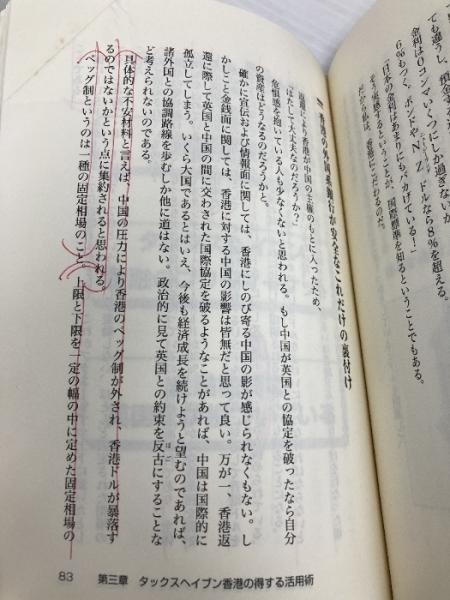 ても違うし、預金す
金利は0コンマいくつにしか過ぎない
6％もつく。ポンドやNZドルなら8％を超える。
「日本の金利はあまりにもふざけている！」
そう痛感するということが、国際標準を知るということでもある。
だからこそ、香港にこだわるのだ。
香港の外国系銀行が安全なこれだけの裏付け
返還により香港が中国の主権のもとに入ったため、
「はたして大丈夫なのだろうか？」
危惧感を抱いている人も少なくないと思われる。もし中国が英国との協定を破ったなら自分
の資産はどうなるのだろうかと。
確かに宣伝および情報面に関しては、香港にしのび寄る中国の影が感じられなくもない。し
かしこと金銭面に関しては、香港に対する中国の影響は皆無だと思って良い。万が一、香港返
還に際して英国と中国の間に交わされた国際協定を破るようなことがあれば、中国は国際的に
孤立してしまう。いくら大国であるとはいえ、今後も経済成長を続けようと望むのであれば、
諸外国との協調路線を歩むしか他に道はない。政治的に見て英国との約束を反古にすることな
ほご
ど考えられないのである。
具体的な不安材料と言えば、中国の圧力により香港のペッグ制が外され、香港ドルが暴落す
るのではないかという点に集約されると思われる。
ペッグ制というのは一種の固定相場のこと。上限と下限を一定の幅の中に定めた固定相場の
83 第三章 タックスヘイブン香港の得する活用術